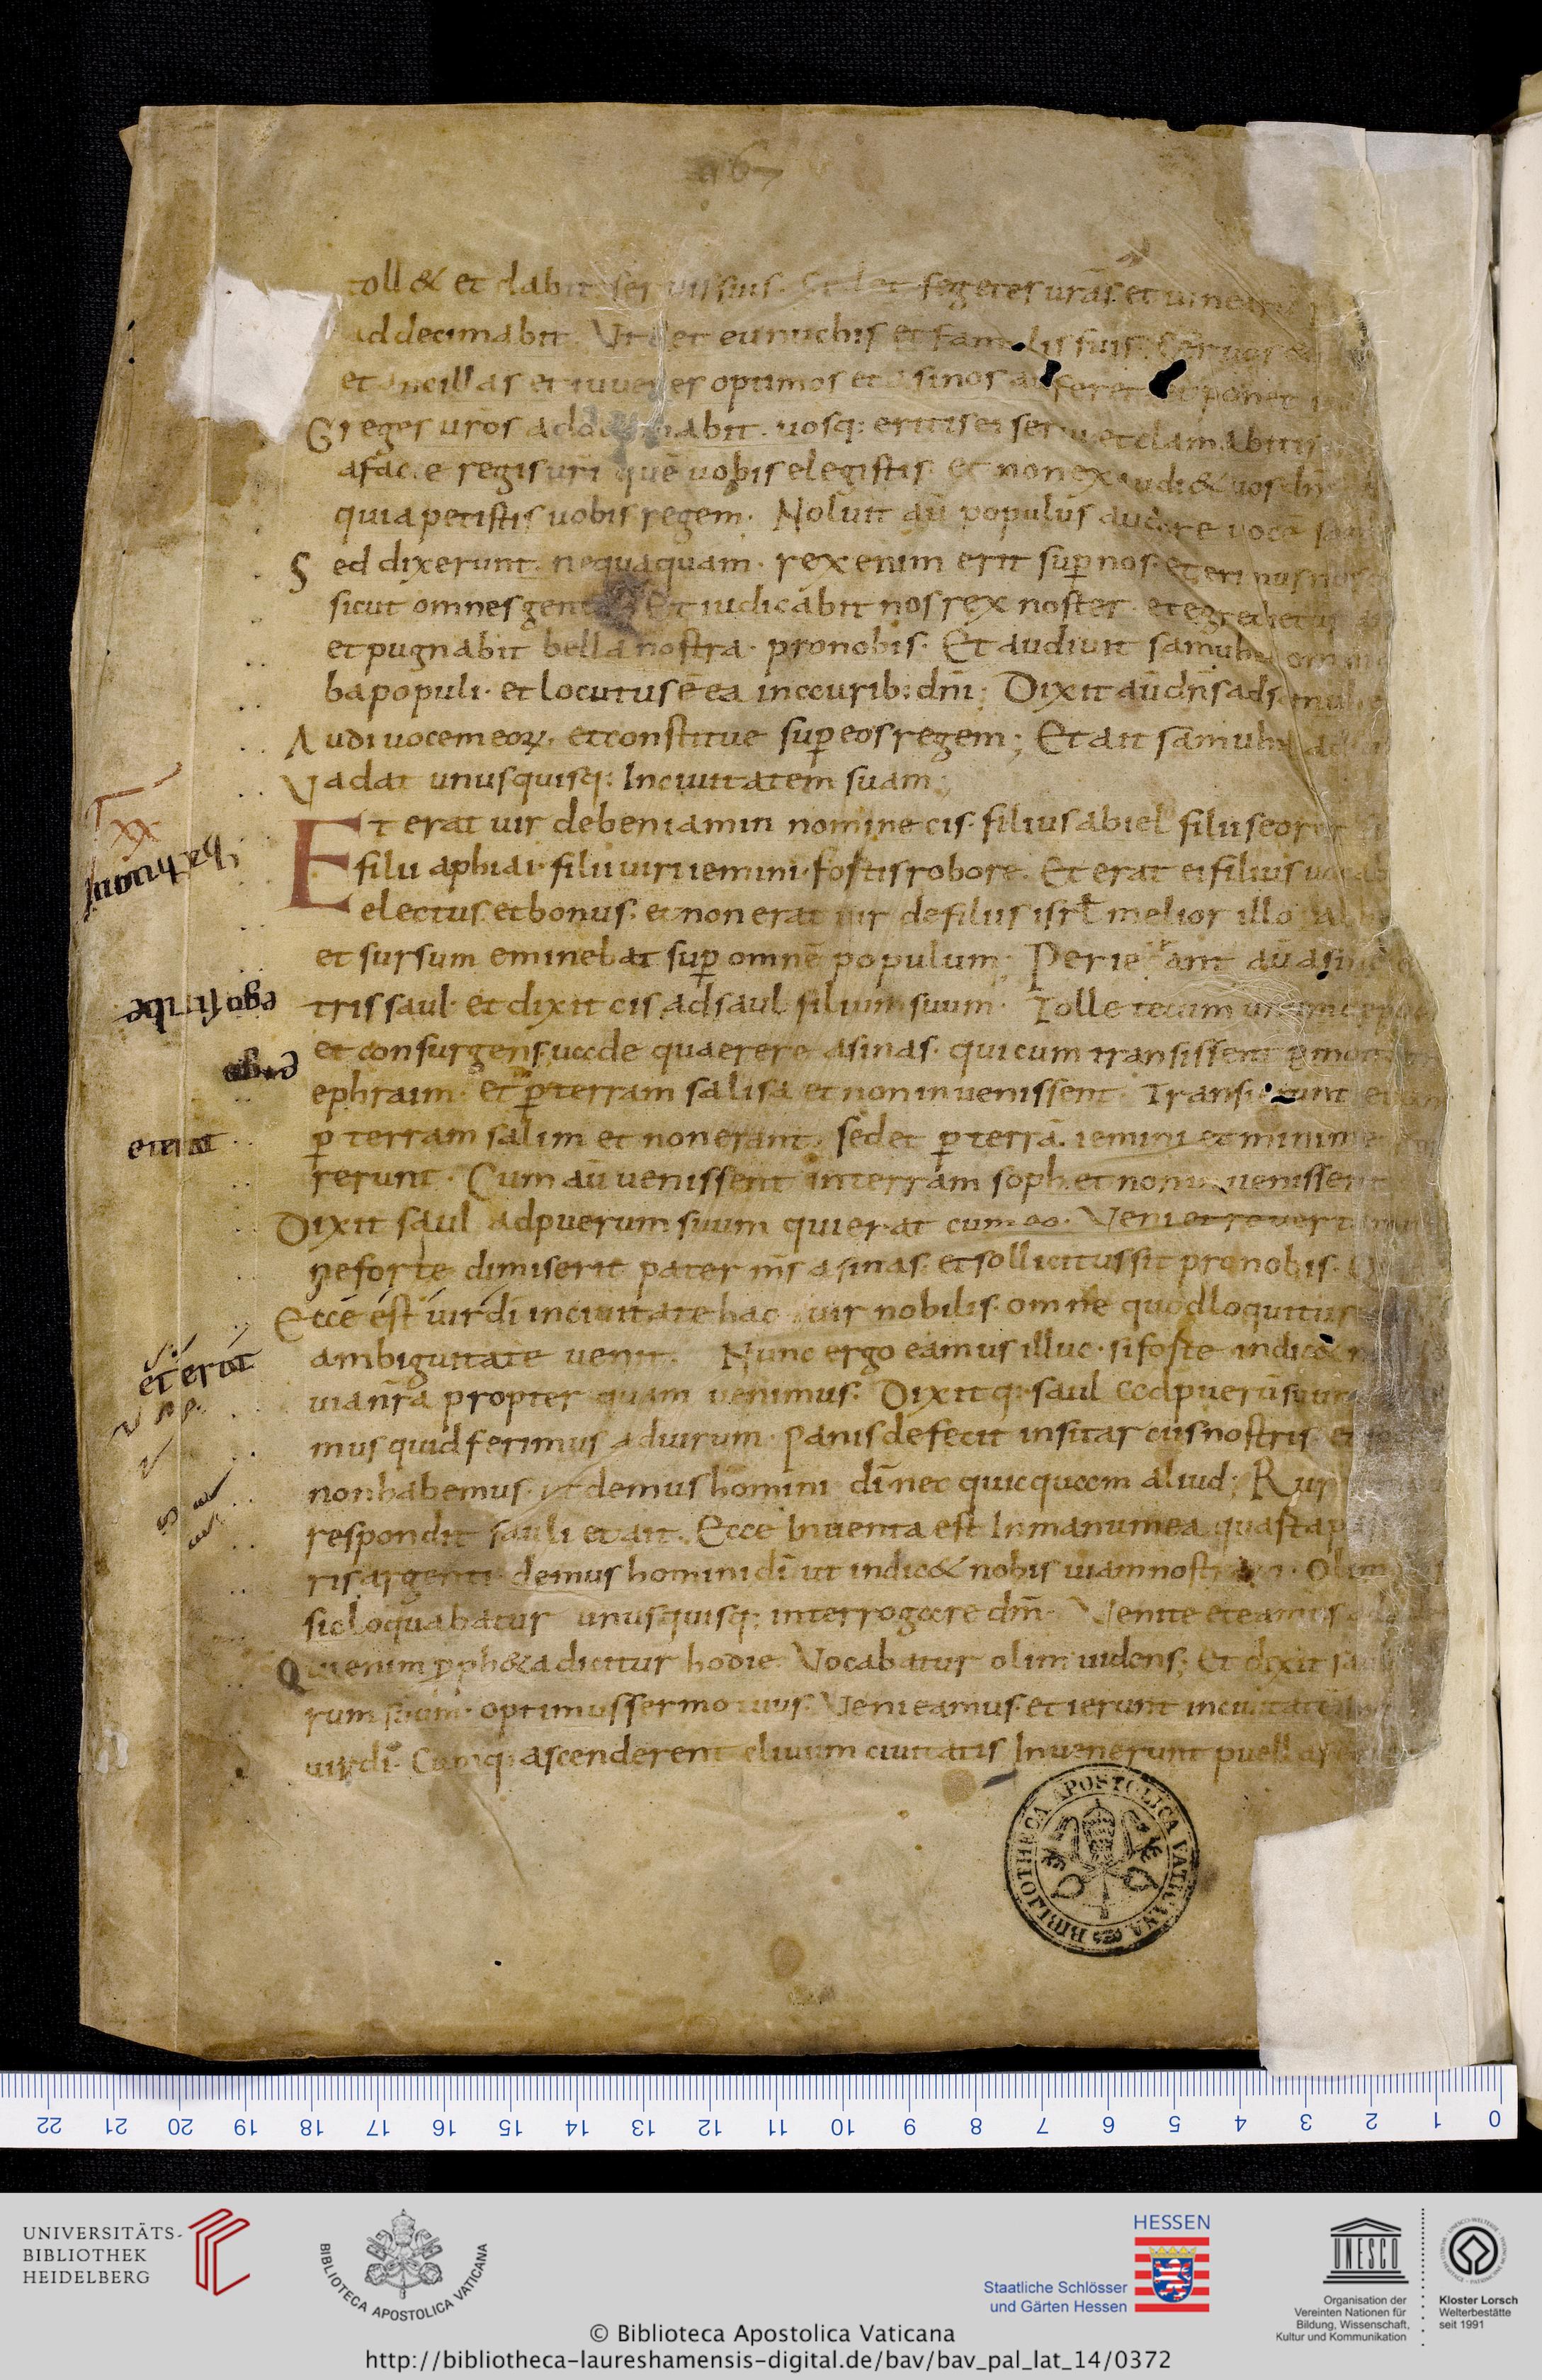 967
toll& et dabit seruis suis. Sed et segetes urās et uinearū
addecimabit. Ut det eunuchis et famolis suis. Seruos &
et ancillas et iuuenes optimos et asinos auferet et ponet
Greges uros addecimabit. uosq; eritis ei serui et clamabitis
afacie regis uri quē uobis elegistis. et non exaudi& uos dns
quia petistis uobis regem. Noluit aū populus audire uocē
Sed dixerunt. nequaquam. rex enim erit sup nos. et erimus nos
sicut omnes gentes. Et iudicabit nos rex noster. et egredietur
et pugnabit bella nostra. pro nobis. Et audiuit samuhel omnia
ba populi. et locutus ē ea in aurib; dni; Dixit aū dns ad samuhe
Audi uocem eoꝝ. et constitue sup eos regem; Et ait samuhel ad
Vadat unusquisq; In ciuitatem suam;
Et erat uir de beniamin nomine cis. filius abiel filii seor
filii aphiai. filii uiri iemini. fortis robore. Et erat ei filius uocab
electus et bonus. et non erat uir de filiis isrl melior illo
et sursum eminebat sup omnē populum; Perierant aū asine
tris saul. et dixit cis ad saul filium suum. Tolle tecum unum de
et consurgens uade quaerere asinas. qui cum transissent p mon
ephraim. et p terram salisa et non inuenissent. Transierunt
p terram salim et non erant. sed et p terrā iemini et minime
rerunt. Cum aū uenissent in terram soph. et non inuenissent
Dixit saul ad puerum suum qui erat cum eo. Veni et reuert
ne forte dimiserit pater ms asinas. et sollicitus sit pro nobis.
Ecce est uir di in ciuitate hac uir nobilis. omne quod loquitur
ambiguitate uenit. Nunc ergo eamus illuc. si forte indic&
uia nra propter quam uenimus. Dixitq; saul ad puerū suum
mus quid ferimus ad uirum. panis defecit in sitarciis nostris. et
non habemus. ut demus homini di. nec quicquam aliud; Rur
respondit sauli et ait. Ecce Inuenta est In manu mea quarta
ris argenti. demus homini di ut indic& nobis uiam nostram. Olim
sic loquabatur unusquisq; interrogare dm. Venite et eamus
Qui enim ꝓph&a dicitur hodie. Vocabatur olim uidens; Et dixit
rum suum. optimus sermo tuus. Veni eamus. et ierunt in ciuitatē
uir di. Cumq; ascenderent cliuum ciuitatis Inuenerunt puellas
XX
et erat
BIBLIOTHECA APOSTOLICA VATICANA
22 21 20 19 18 17 16 15 14 13 12 11 10 9 8 7 6 5 4 3 2 1 0
UNIVERSITÄTS-
BIBLIOTHEK
HEIDELBERG
BIBLIOTECA APOSTOLICA VATICANA
HESSEN
Staatliche Schlösser
und Gärten Hessen
UNESCO
Organisation der
Vereinten Nationen für
Bildung, Wissenschaft,
Kultur und Kommunikation
Kloster Lorsch
Welterbestätte
seit 1991
© Biblioteca Apostolica Vaticana
http://bibliotheca-laureshamensis-digital.de/bav/bav_pal_lat_14/0372